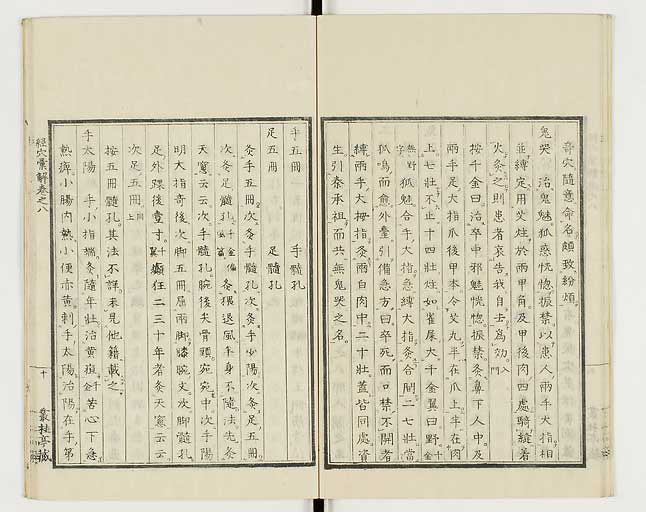 奇穴隨意命名頗致紛煩
鬼哭 治鬼魅狐惑恍惚振禁以患人兩手大指相
並縛定用艾炷於兩甲角及甲後肉四處騎縫著
火灸之則患者哀告我自去為効
按千金曰治卒中邪魅恍惚振禁灸鼻下人中及
兩手足大指爪後甲本令艾丸半在爪上半在肉
上七壯不止十四壯炷如雀屎大千金翼曰野
狐魅合手大指急縛大指灸合間二七壯當
狐鳴而愈外臺引備急方曰卒死而口禁不開者
縛兩手大拇指灸兩白肉中二十壯蓋皆同處資
生引秦承祖而共無鬼哭之名
手五冊 手髓孔
足五冊 足髓孔
灸手五冊次灸手髓孔次灸手少陽次灸足五冊
次灸足髓孔 猥退風半身不隨法先灸
天窻云云次手髓孔腕後尖骨頭宛宛中次手陽
明大指奇後次脚五冊屈兩脚膝腕文次脚髓孔
足外踝後一寸 癲狂二三十年者灸天窻云云
次足五冊上
按五冊髓孔其法不詳未見他籍載之
手太陽 手小指端灸隨年壯治黄疸 苦心下急
熱痺小腸肉熱小便赤黄刺手太陽治陽在手第
經穴彙解卷之八
十
叢桂亭藏